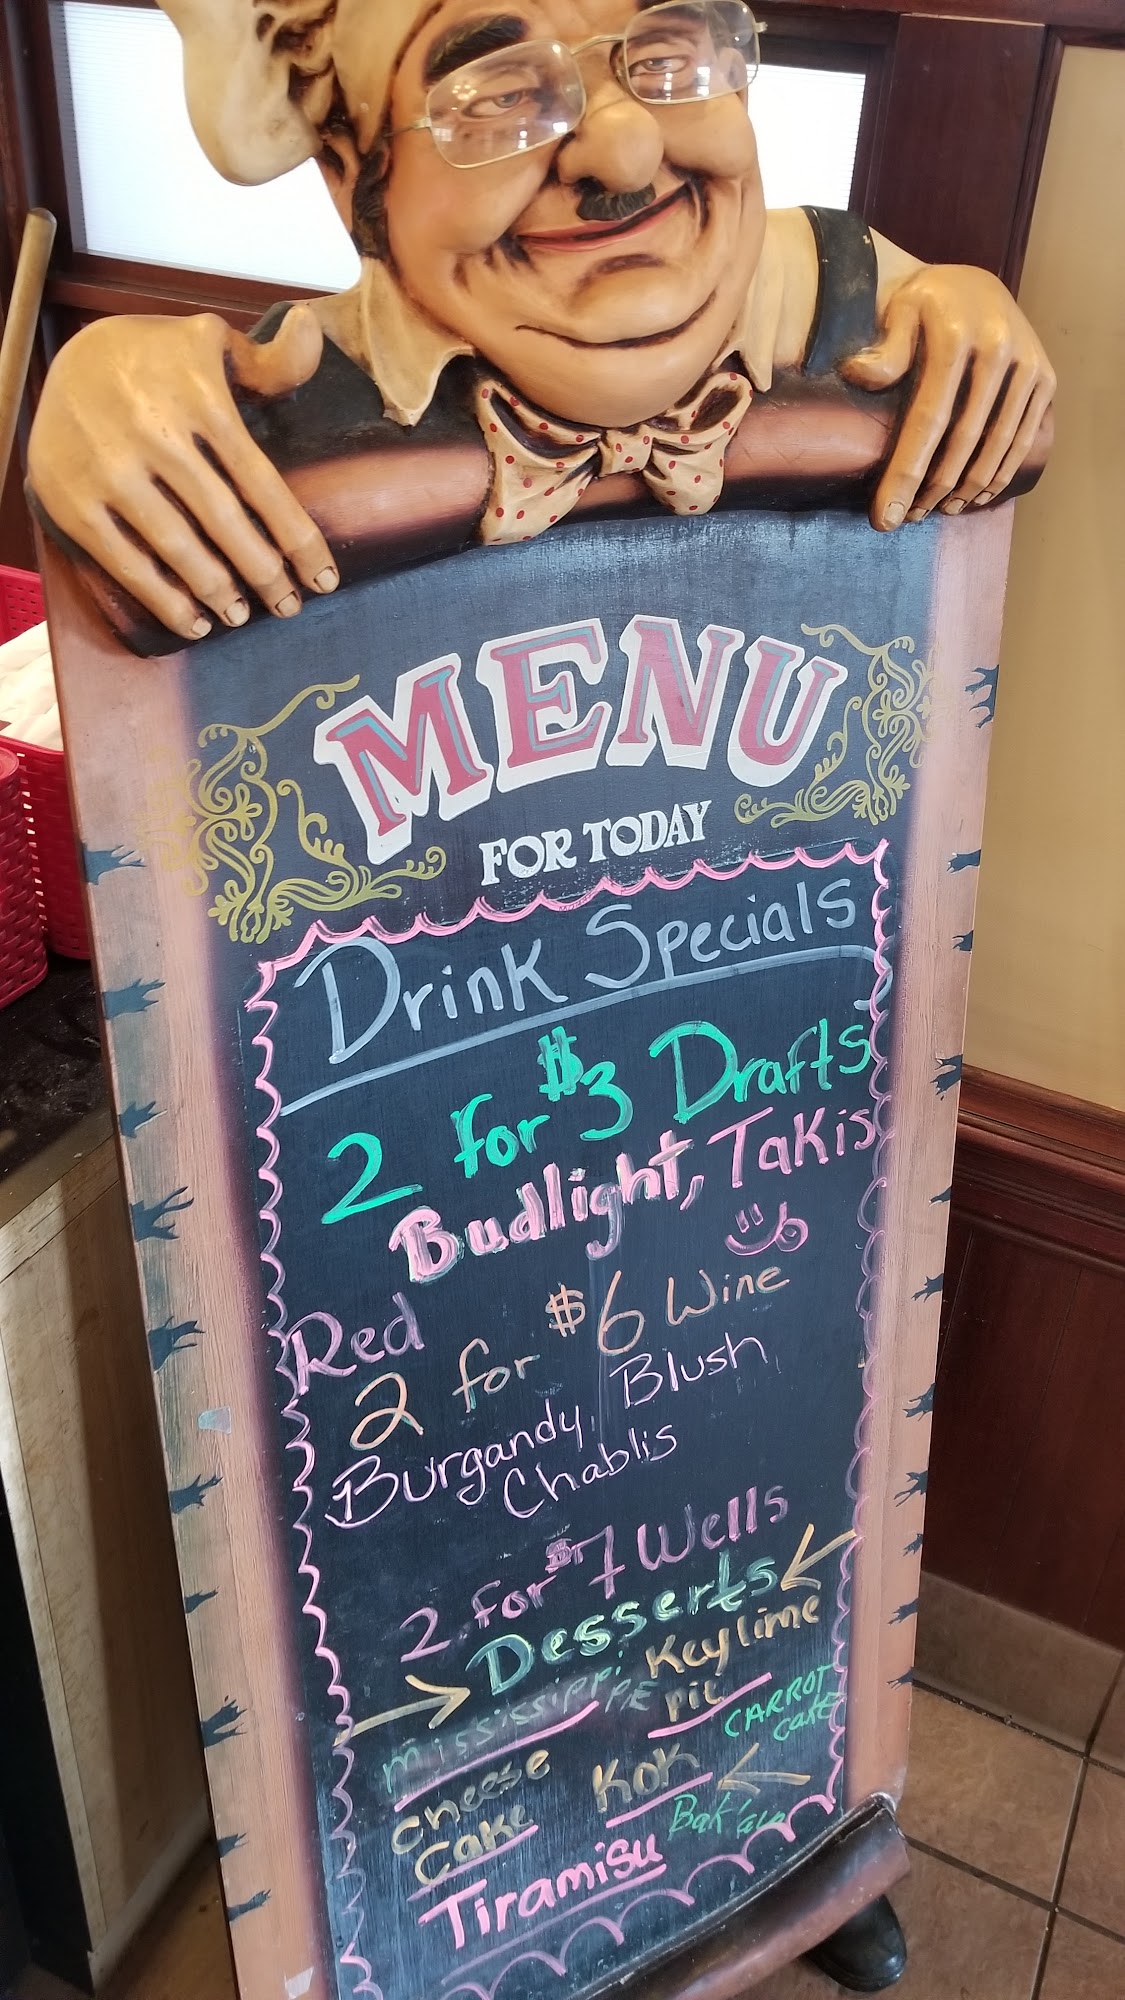 MENU
FOR TODAY
Drink Specials
2 for $3 Drafts
Budlight, Takis
Red
2 for $6 Wine
Burgandy, Blush,
Chablis
2 for $7 Wells
Desserts
Mississippi PIE
Keylime pie
CARROT Cake
Cheese Cake
KOK
Tiramisu